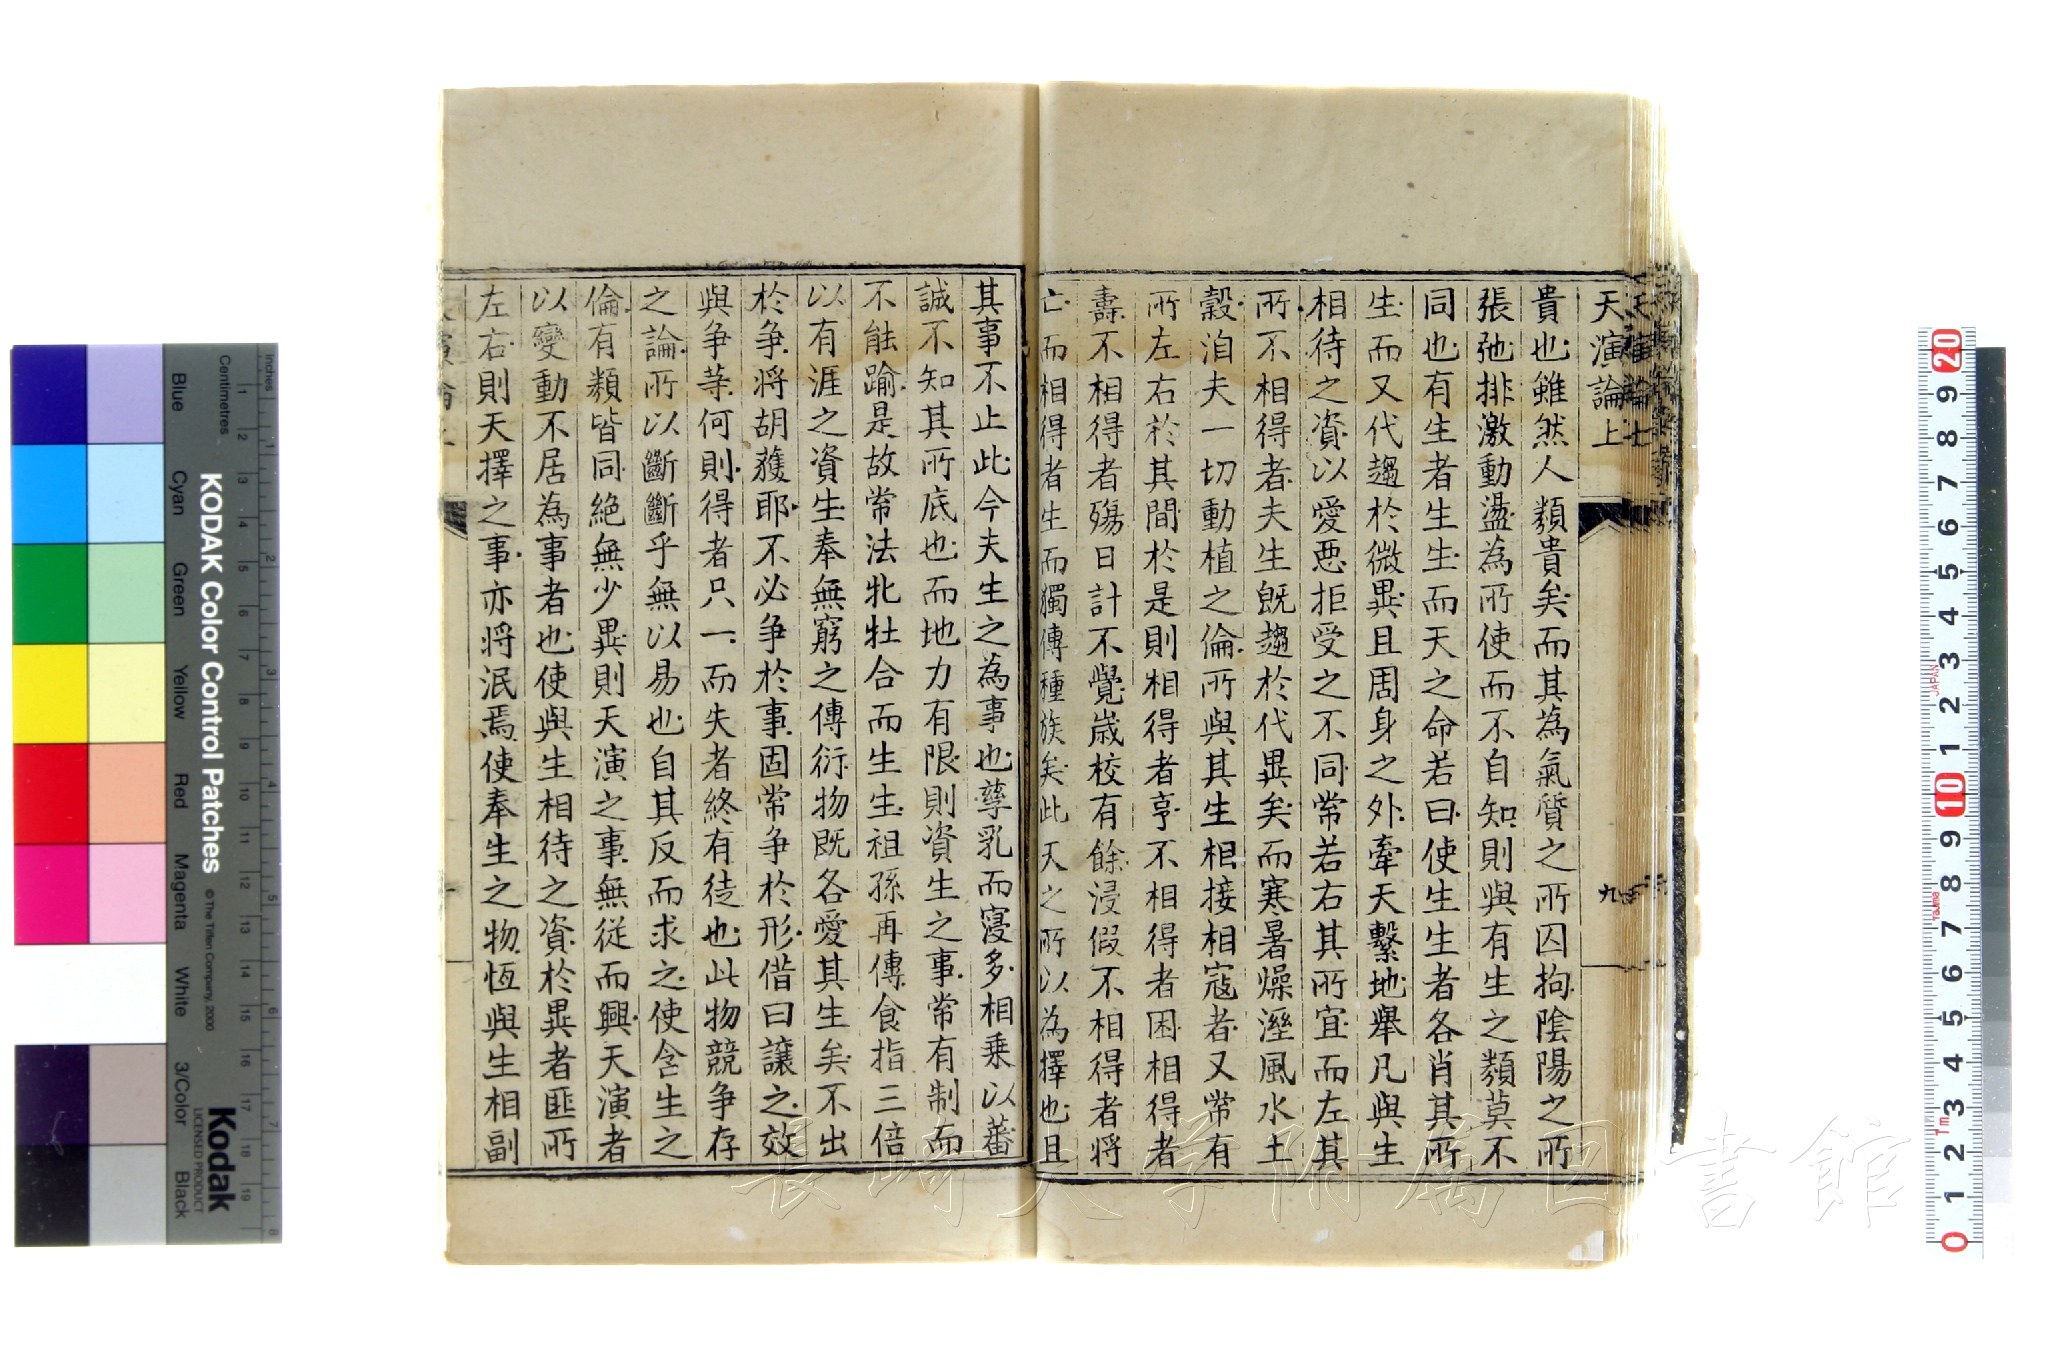 天演論上
九
貴也雖然人類貴矣而其為氣質之所囚拘陰陽之所
張弛排激動盪為所使而不自知則與有生之類莫不
同也有生者生生而天之命若曰使生生者各肖其所
生而又代趨於微異且周身之外牽天繫地舉凡與生
相待之資以愛惡拒受之不同常若右其所宜而左其
所不相得者夫生既趨於代異矣而寒暑燥溼風水土
穀洎夫一切動植之倫所與其生相接相寇者又常有
所左右於其間於是則相得者亨不相得者困相得者
壽不相得者殤日計不覺歲校有餘浸假不相得者將
亡而相得者生而獨傳種族矣此天之所以為擇也且
其事不止此今夫生之為事也孳乳而寖多相乘以蕃
誠不知其所底也而地力有限則資生之事常有制而
不能踰是故常法牝牡合而生生祖孫再傳食指三倍
以有涯之資生奉無窮之傳衍物既各愛其生矣不出
於爭將胡獲耶不必爭於事固常爭於形借曰讓之效
與爭等何則得者只一而失者終有徒也此物競爭存
之論所以斷斷乎無以易也自其反而求之使含生之
倫有類皆同絕無少異則天演之事無從而興天演者
以變動不居為事者也使與生相待之資於異者匪所
左右則天擇之事亦將泯焉使奉生之物恆與生相副
長崎大学附属図書館
KODAK Color Control Patches
© The Tiffen Company, 2000
Kodak
LICENSED PRODUCT
Inches
Centimetres
Blue
Cyan
Green
Yellow
Red
Magenta
White
3/Color
Black
JAPAN
Tajima